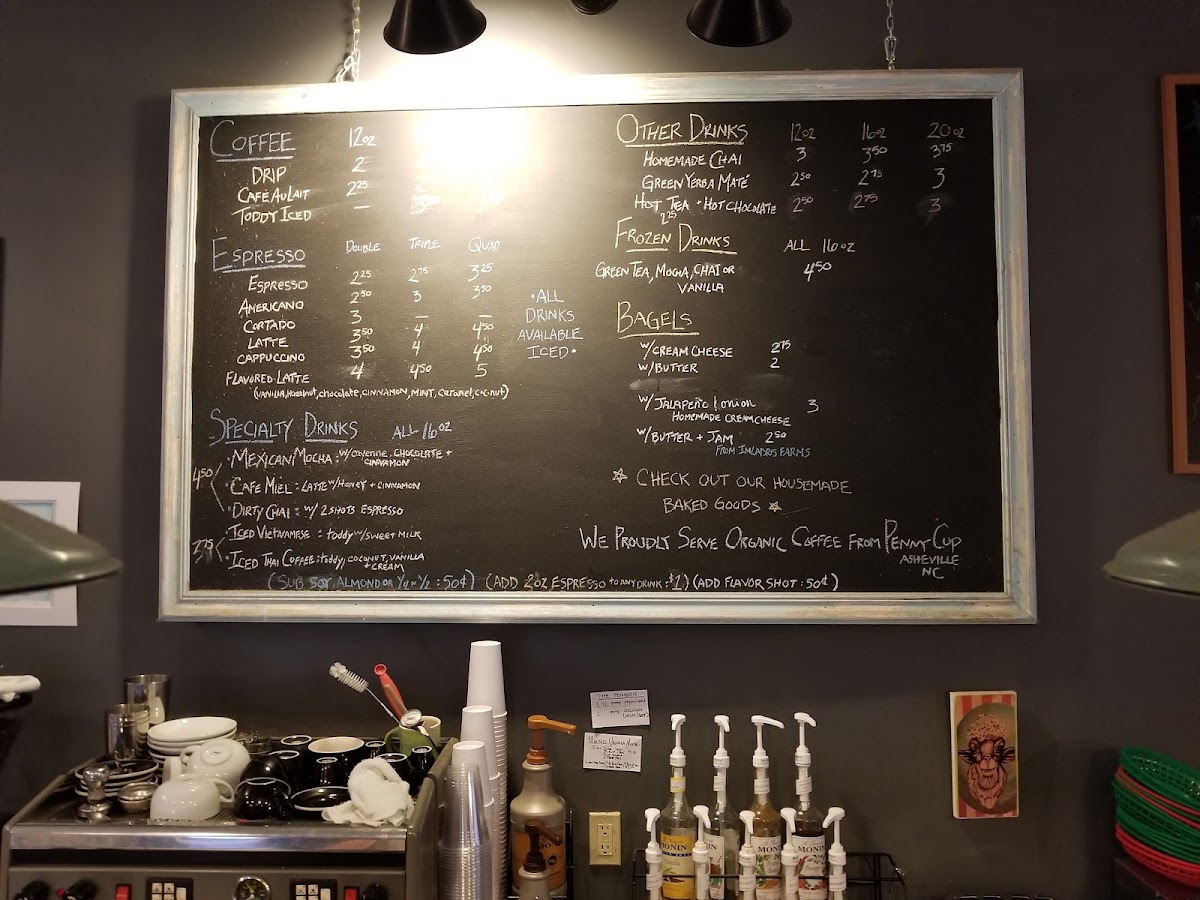 COFFEE 12oz
DRIP 2
CAFÉ AU LAIT 2 25
TODDY ICED —
ESPRESSO DOUBLE TRIPLE QUAD
ESPRESSO 2 25 2 75 3 25
AMERICANO 2 50 3 3 50
CORTADO 3 — —
LATTE 3 50 4 4 50
CAPPUCCINO 3 50 4 4 50
FLAVORED LATTE 4 4 50 5
(VANILLA, Hazelnut, chocolate, CINNAMON, MINT, Caramel, coconut)
• ALL
DRINKS
AVAILABLE
ICED •
SPECIALTY DRINKS ALL 16 OZ
4 50
• MEXICAN MOCHA: w/ cayenne, CHOCOLATE +
CINNAMON
• CAFE MIEL: LATTE w/ HONEY + CINNAMON
• DIRTY CHAI: w/ 2 SHOTS ESPRESSO
2 75
• ICED VIETNAMESE: toddy w/ SWEET MILK
• ICED THAI COFFEE: toddy, COCONUT, VANILLA
+ CREAM
(SUB SOY, ALMOND OR ½ n ½ : 50¢) (ADD 2oz ESPRESSO to ANY DRINK: $1) (ADD FLAVOR SHOT: 50¢)
OTHER DRINKS 12oz 16oz 20oz
HOMEMADE CHAI 3 3 50 3 75
GREEN YERBA MATÉ 2 50 2 75 3
HOT TEA + HOT CHOCOLATE 2 50 2 75 3
2 25
FROZEN DRINKS ALL 16oz
GREEN TEA, MOCHA, CHAI OR 4 50
VANILLA
BAGELS
w/ CREAM CHEESE 2 75
w/ BUTTER 2
w/ JALAPEÑO & ONION 3
HOMEMADE CREAM CHEESE
w/ BUTTER + JAM 2 50
FROM IMLADRIS FARMS
☆ CHECK OUT OUR HOUSEMADE
BAKED GOODS ☆
WE PROUDLY SERVE ORGANIC COFFEE FROM PENNY CUP
ASHEVILLE
NC
MONIN
MONIN
MONIN